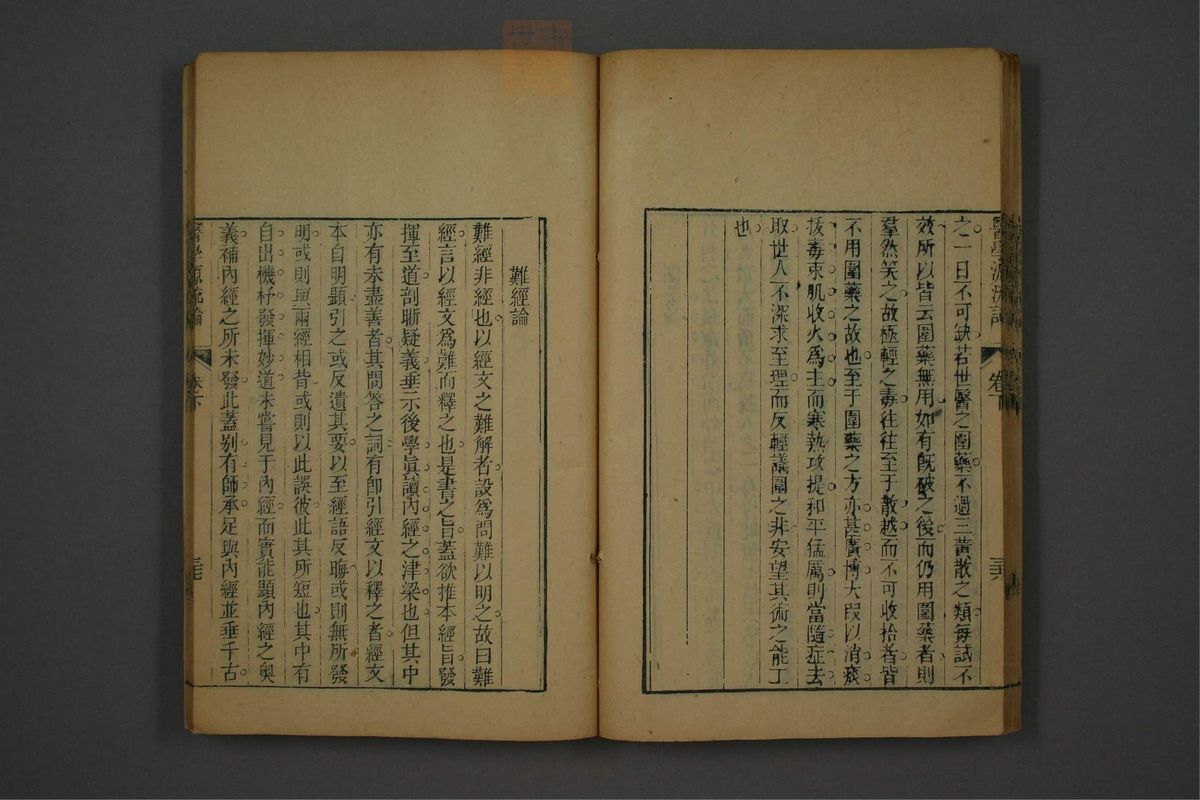 醫學源流論 卷下 三六
之一日不可缺若世醫之圍藥不過三黃散之類每試不
效所以皆云圍藥無用如有既破之後而仍用圍藥者則
羣然笑之故極輕之毒往往至于散越而不可收拾者皆
不用圍藥之故也至于圍藥之方亦甚廣博大段以消痰
拔毒束肌收火為主而寒熱攻提和平猛厲則當隨症去
取世人不深求至理而反輕議圍之非安望其術之能工
也
難經論
難經非經也以經文之難解者設爲問難以明之故曰難
經言以經文爲難而釋之也是書之旨蓋欲推本經旨發
揮至道剖晰疑義垂示後學眞讀內經之津梁也但其中
亦有未盡善者其問答之詞有即引經文以釋之者經文
本自明顯引之或反遺其要以至經語反晦或則無所發
明或則與兩經相背或則以此誤彼此其所短也其中有
自出機杼發揮妙道未嘗見于內經而實能顯內經之奧
義補內經之所未發此蓋别有師承足與內經並垂千古
醫學源流論 卷下 三七